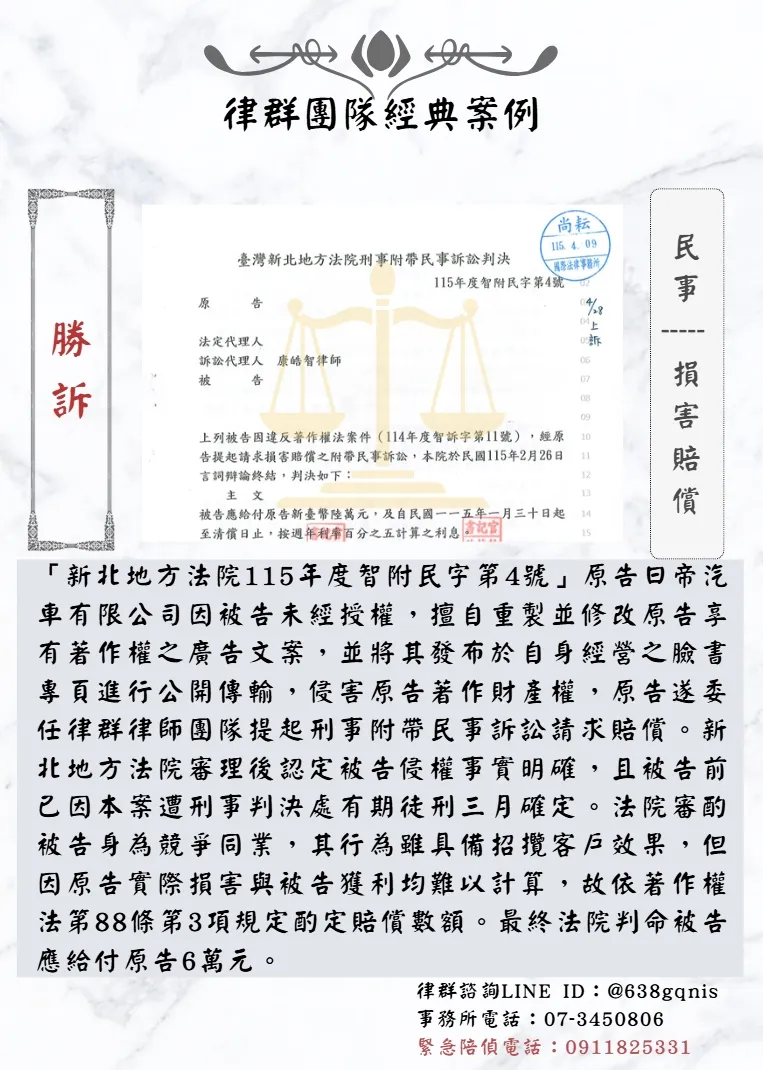 律群團隊經典案例
勝訴
民事
-----
損害賠償
尚耘
115. 4. 09
國際法律事務所
臺灣新北地方法院刑事附帶民事訴訟判決
115年度智附民字第4號
02
原 告
03
4/28 上訴
04
法定代理人
05
訴訟代理人 康皓智律師
06
被 告
07
08
09
上列被告因違反著作權法案件(114年度智訴字第11號),經原
10
告提起請求損害賠償之附帶民事訴訟,本院於民國115年2月26日
11
言詞辯論終結,判決如下:
12
主 文
13
被告應給付原告新臺幣陸萬元,及自民國一一五年一月三十日起
14
至清償日止,按週年利率百分之五計算之利息。
15
書記官
「新北地方法院115年度智附民字第4號」原告日帝汽
車有限公司因被告未經授權,擅自重製並修改原告享
有著作權之廣告文案,並將其發布於自身經營之臉書
專頁進行公開傳輸,侵害原告著作財產權,原告遂委
任律群律師團隊提起刑事附帶民事訴訟請求賠償。新
北地方法院審理後認定被告侵權事實明確,且被告前
已因本案遭刑事判決處有期徒刑三月確定。法院審酌
被告身為競爭同業,其行為雖具備招攬客戶效果,但
因原告實際損害與被告獲利均難以計算,故依著作權
法第88條第3項規定酌定賠償數額。最終法院判命被告
應給付原告6萬元。
律群諮詢LINE ID:@638gqnis
事務所電話:07-3450806
緊急陪偵電話:0911825331